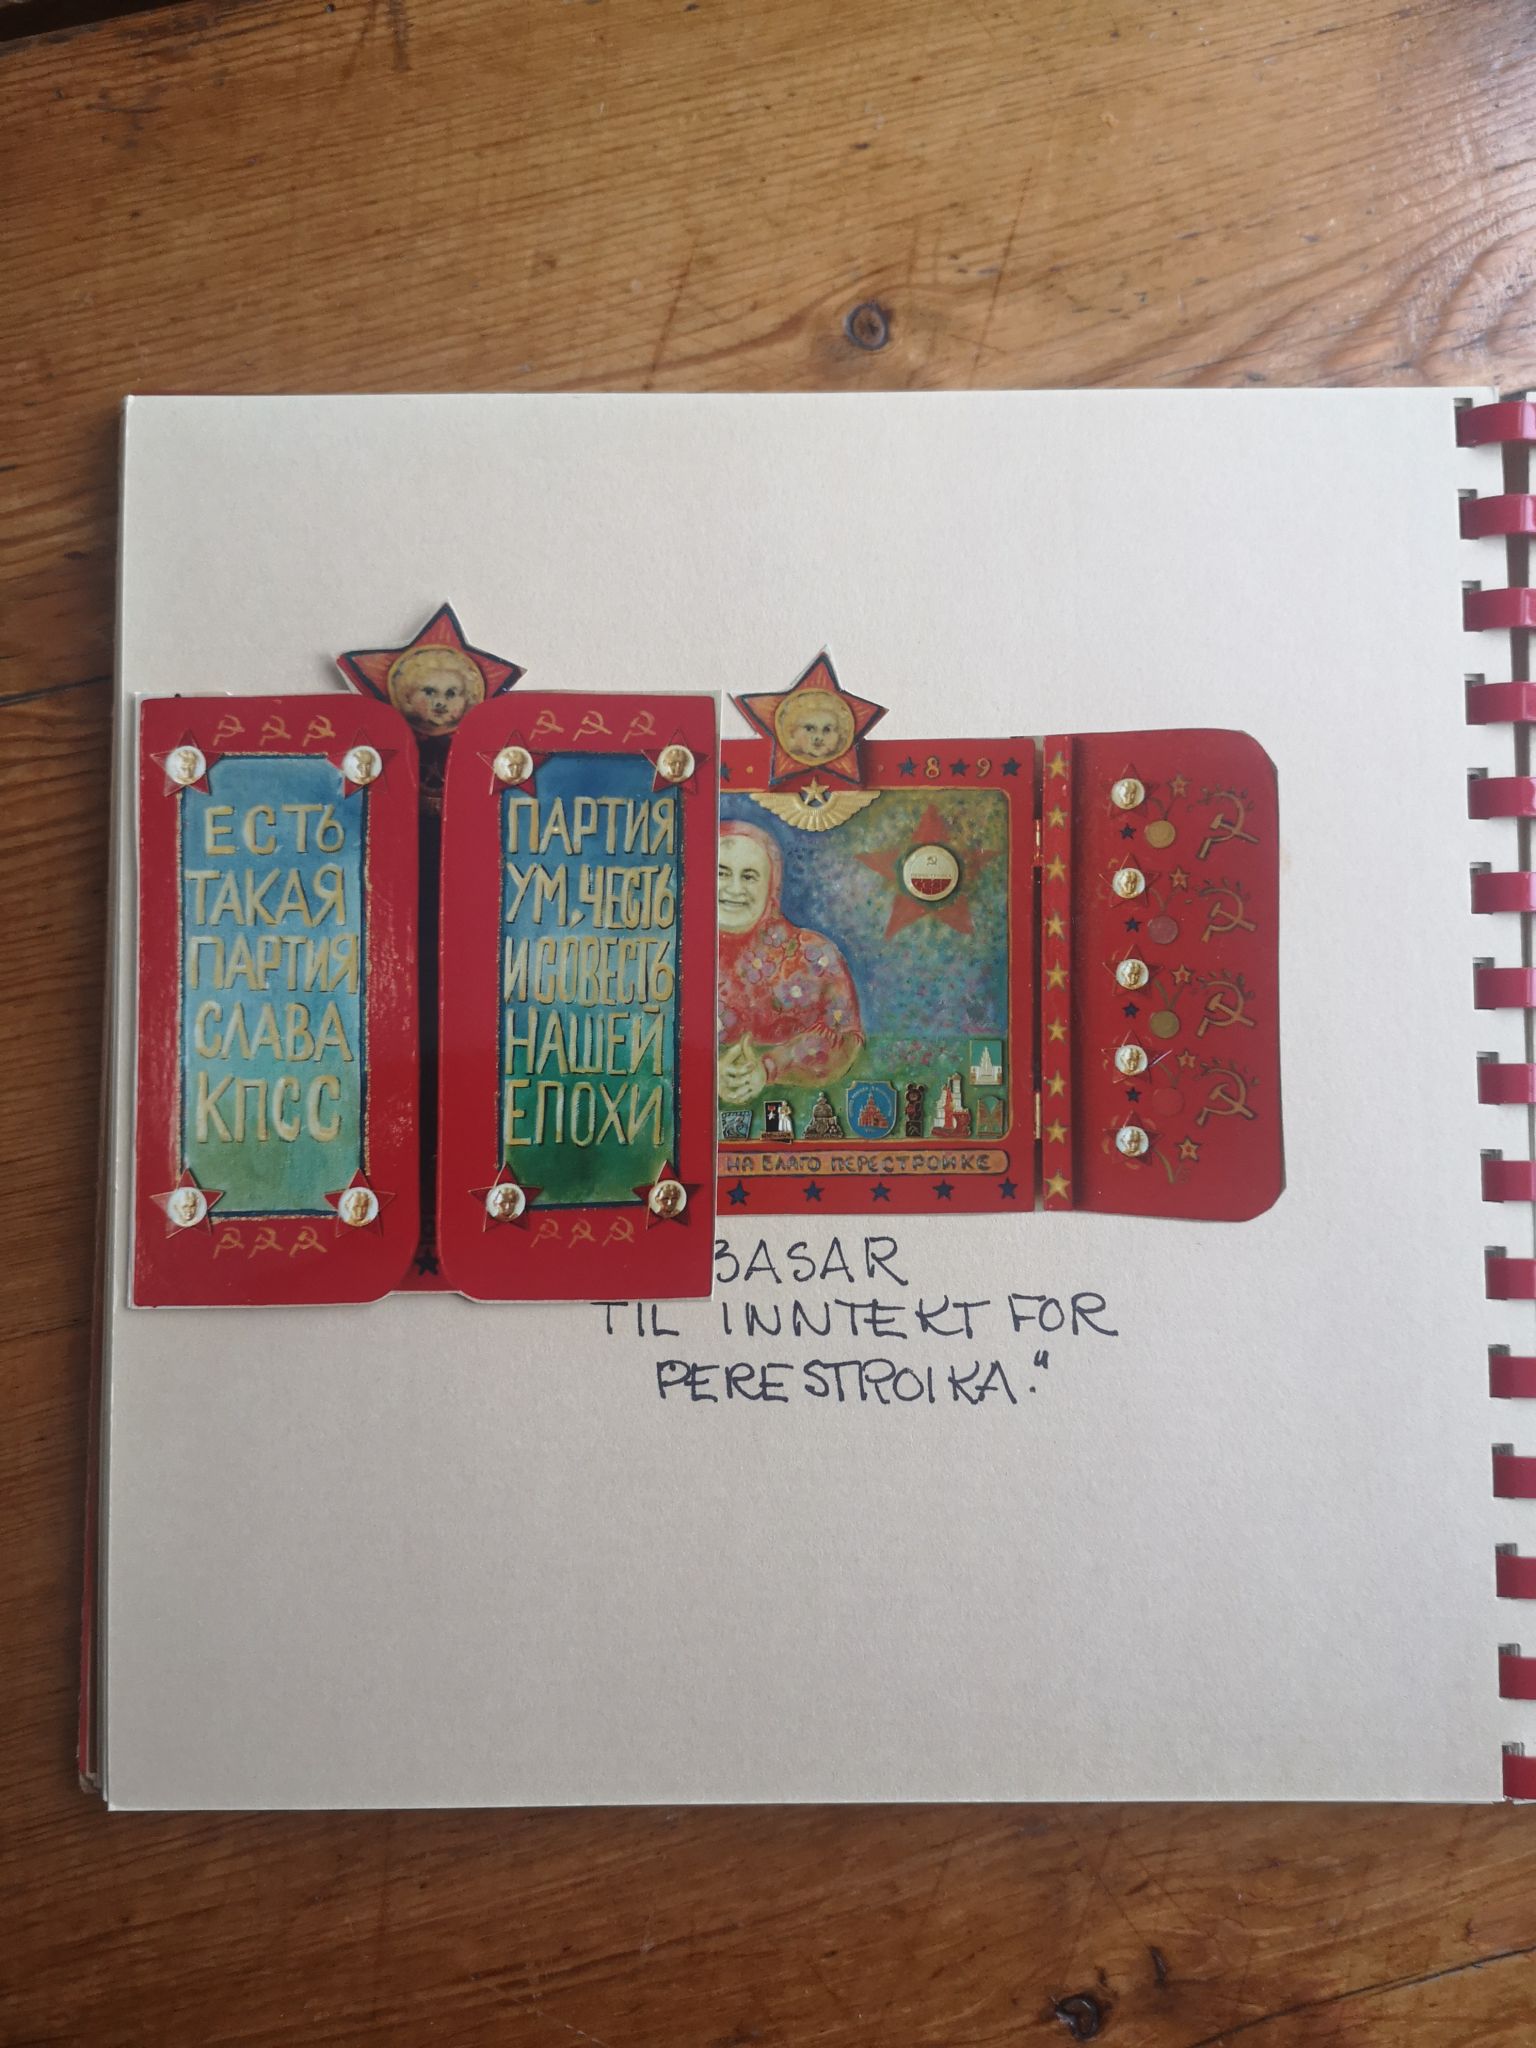 ЕСТЬ
ТАКАЯ
ПАРТИЯ
СЛАВА
КПСС
ПАРТИЯ
УМ, ЧЕСТЬ
И СОВЕСТЬ
НАШЕЙ
ЕПОХИ
89
ПЕРЕСТРОЙКА
НА БЛАГО ПЕРЕСТРОЙКЕ
BASAR
TIL INNTEKT FOR
PERESTROIKA."